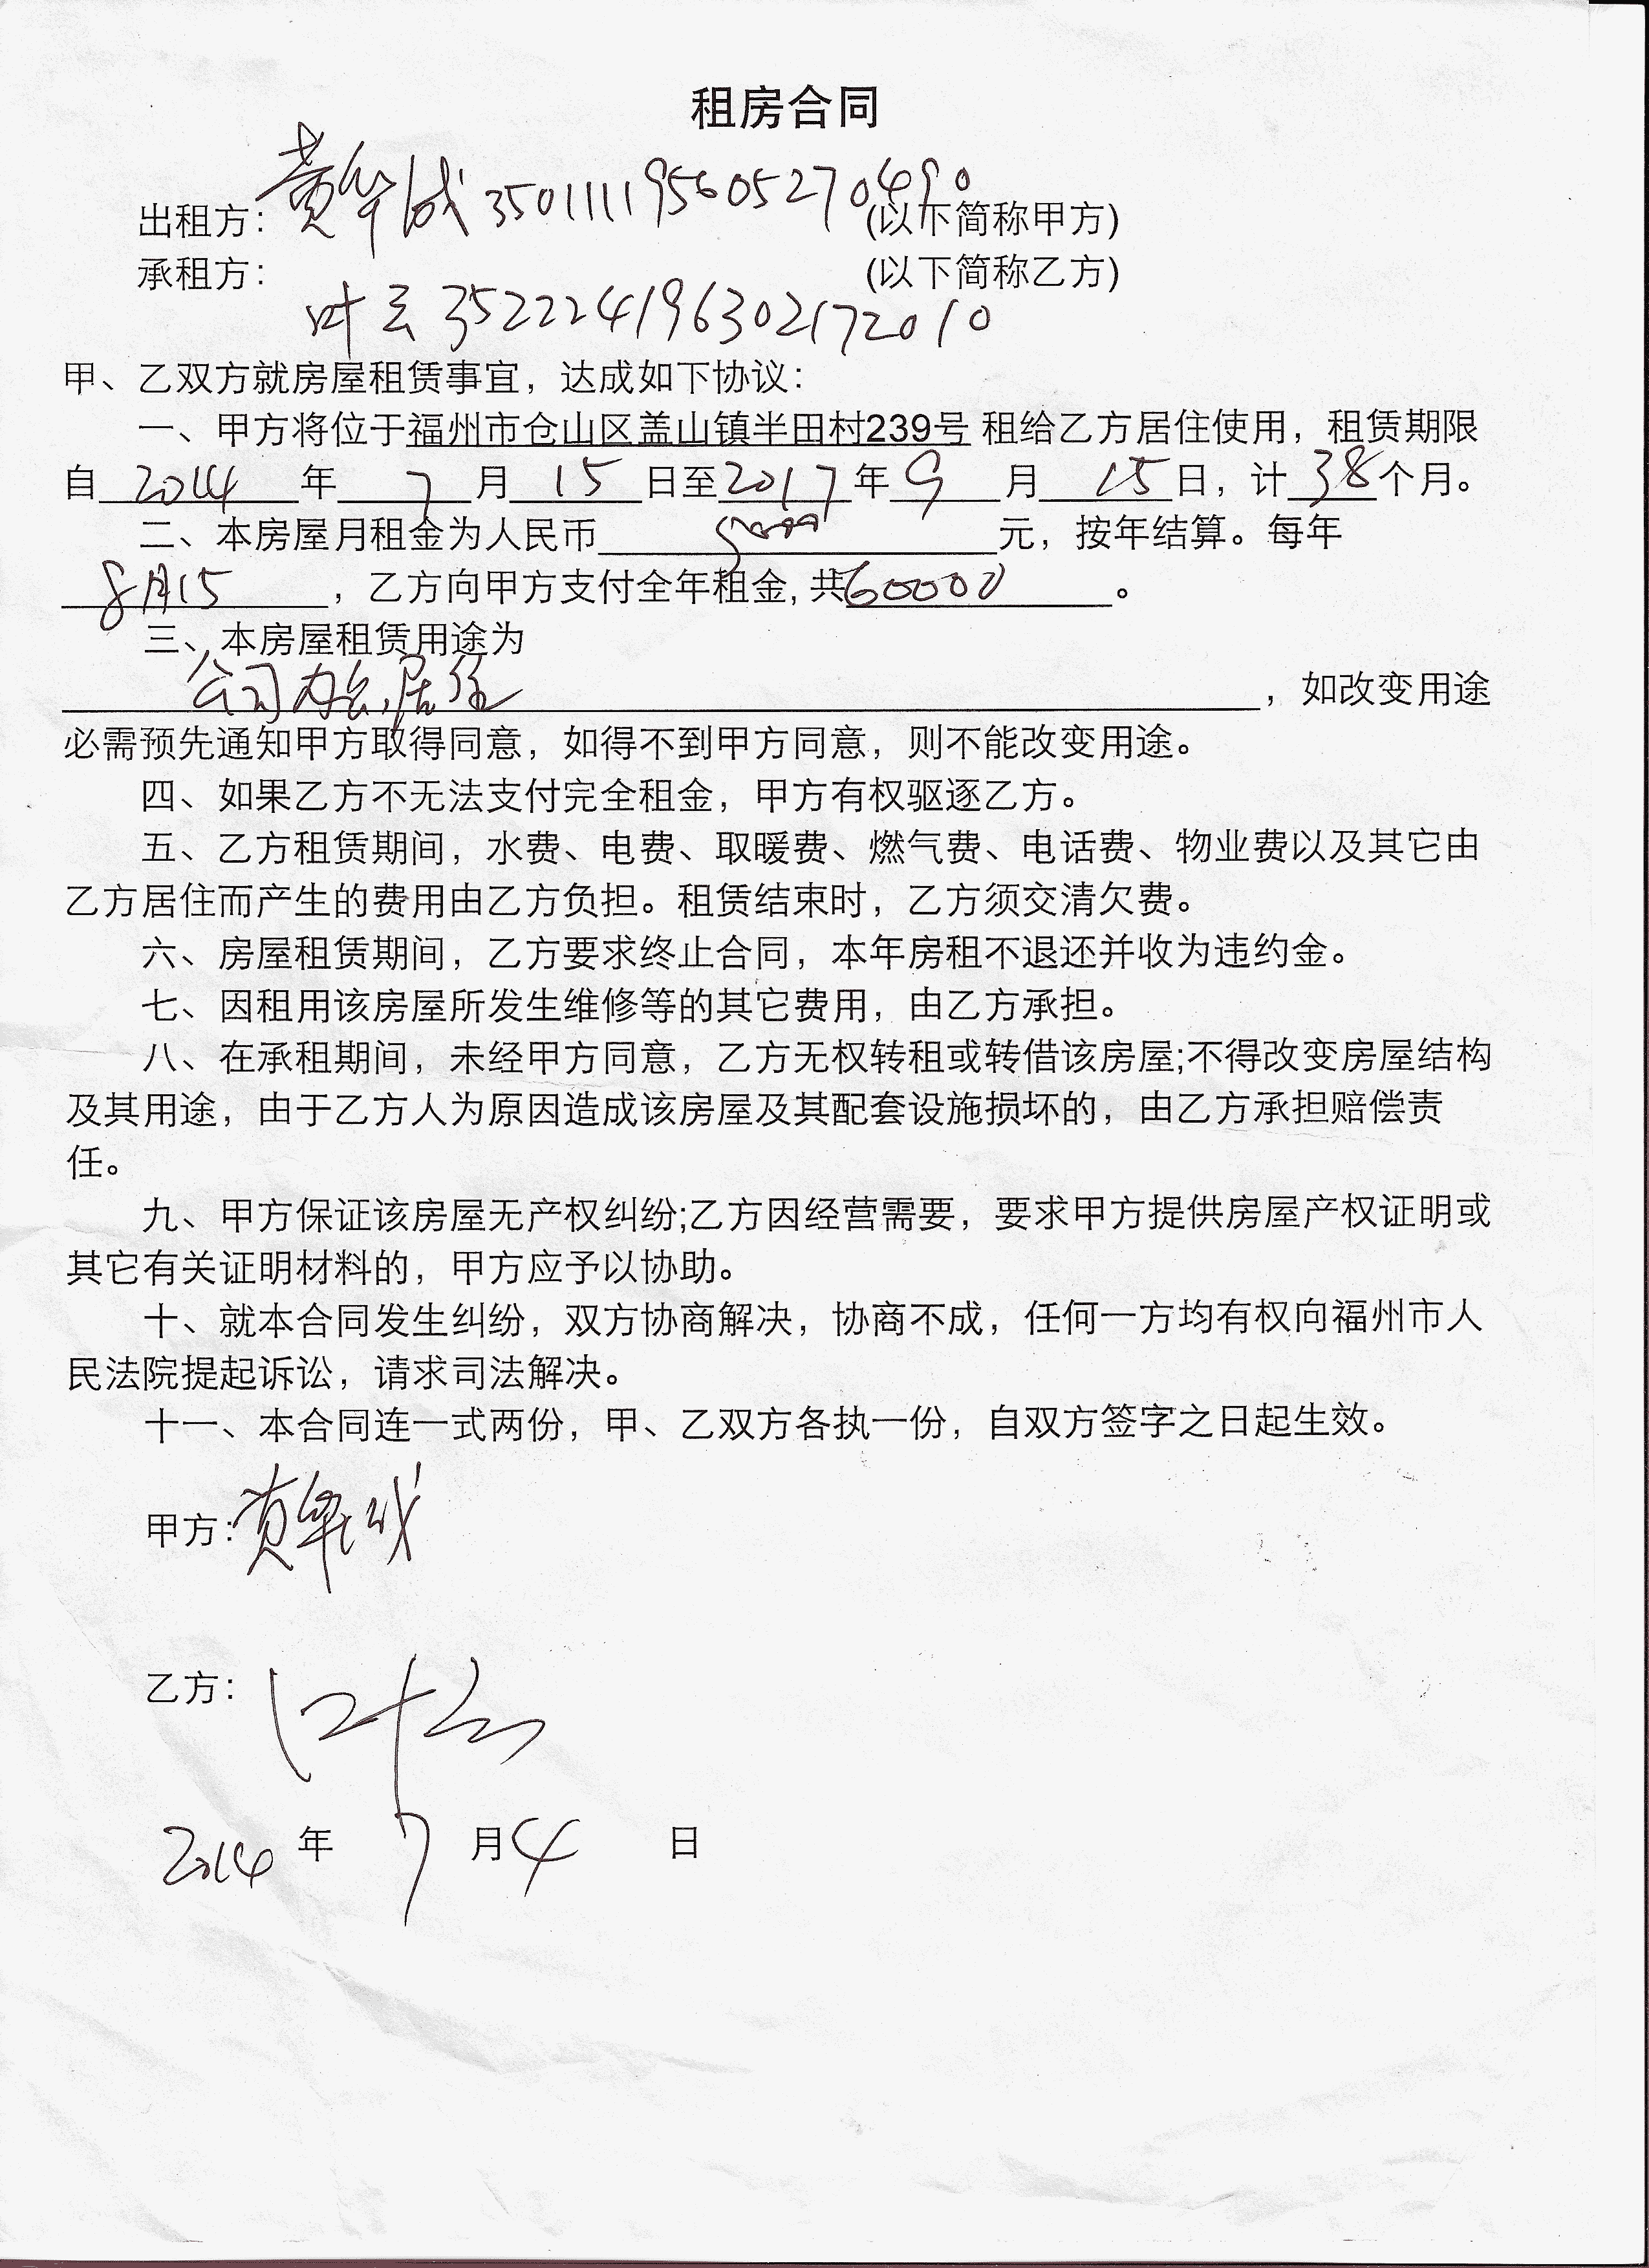 租房合同
出租方：黄华成 350111195605270490 (以下简称甲方)
承租方： (以下简称乙方)
叶云 352224196302172010
甲、乙双方就房屋租赁事宜，达成如下协议：
一、甲方将位于福州市仓山区盖山镇半田村239号 租给乙方居住使用，租赁期限
自2014年7月15日至2017年9月15日，计38个月。
二、本房屋月租金为人民币5000元，按年结算。每年
8月15，乙方向甲方支付全年租金,共60000。
三、本房屋租赁用途为
公司办公,居住，如改变用途
必需预先通知甲方取得同意，如得不到甲方同意，则不能改变用途。
四、如果乙方不无法支付完全租金，甲方有权驱逐乙方。
五、乙方租赁期间，水费、电费、取暖费、燃气费、电话费、物业费以及其它由
乙方居住而产生的费用由乙方负担。租赁结束时，乙方须交清欠费。
六、房屋租赁期间，乙方要求终止合同，本年房租不退还并收为违约金。
七、因租用该房屋所发生维修等的其它费用，由乙方承担。
八、在承租期间，未经甲方同意，乙方无权转租或转借该房屋;不得改变房屋结构
及其用途，由于乙方人为原因造成该房屋及其配套设施损坏的，由乙方承担赔偿责
任。
九、甲方保证该房屋无产权纠纷;乙方因经营需要，要求甲方提供房屋产权证明或
其它有关证明材料的，甲方应予以协助。
十、就本合同发生纠纷，双方协商解决，协商不成，任何一方均有权向福州市人
民法院提起诉讼，请求司法解决。
十一、本合同连一式两份，甲、乙双方各执一份，自双方签字之日起生效。
甲方：黄华成
乙方：叶云
2014年7月4日